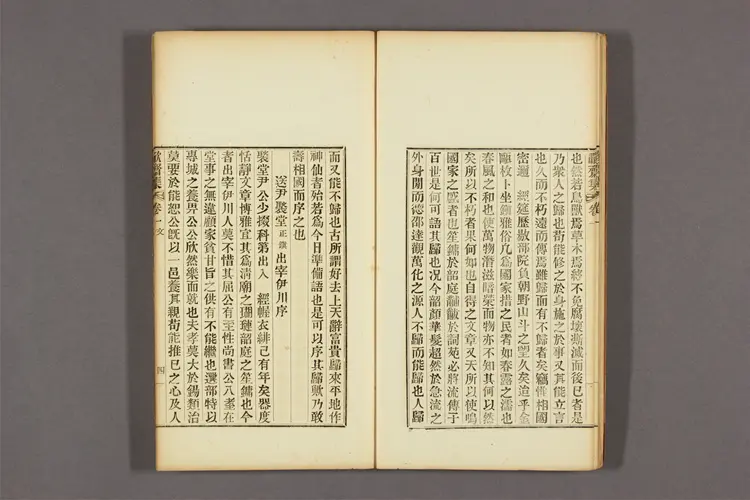 也儵若鳥獸焉草木焉終不免腐壞澌滅而後已者是
乃衆人之歸也苟能修之於身施之於事又其能立言
也久而不朽遠而傳焉雖歸而有不歸者矣竊惟相國
密邇 經筵歷敭部院負朝野山斗之望久矣逌乎金
甌枚卜坐鎭雅俗凢爲國家措之民者如春露之濡也
春風之和也使萬物潛滋暗榮而物亦不知其何以然
矣所以不朽者果何如也自得之文章又天所以使鳴
國家之盛者也笙鏞於韶庭黼黻於詞苑必將流傳于
百世是何可語其歸也况今韶顏華髮超然於急流之
外身閒而德邵達觀萬化之源人不歸而能歸也人歸
而又能不歸也古所謂好去上天辭富貴歸來平地作
神仙者殆若爲今日準備語也是可以序其歸歟乃敢
壽相國而序之也
送尹裴堂 正鎭 出宰伊川序
裴堂尹公少掇科第出入 經幄衣緋已有年矣器度
恬靜文章博雅宜其爲清廟之瑚璉韶庭之笙鏞也今
者出宰伊川人莫不惜其屈公有至性尚書公八耋在
堂事之無違顧家貧甘旨之供有不能繼也選部特以
專城之養畀公公欣然樂而就也夫孝莫大於錫類治
莫要於能恕公旣以一邑養其親苟能推已之心及人
卷一 文 四